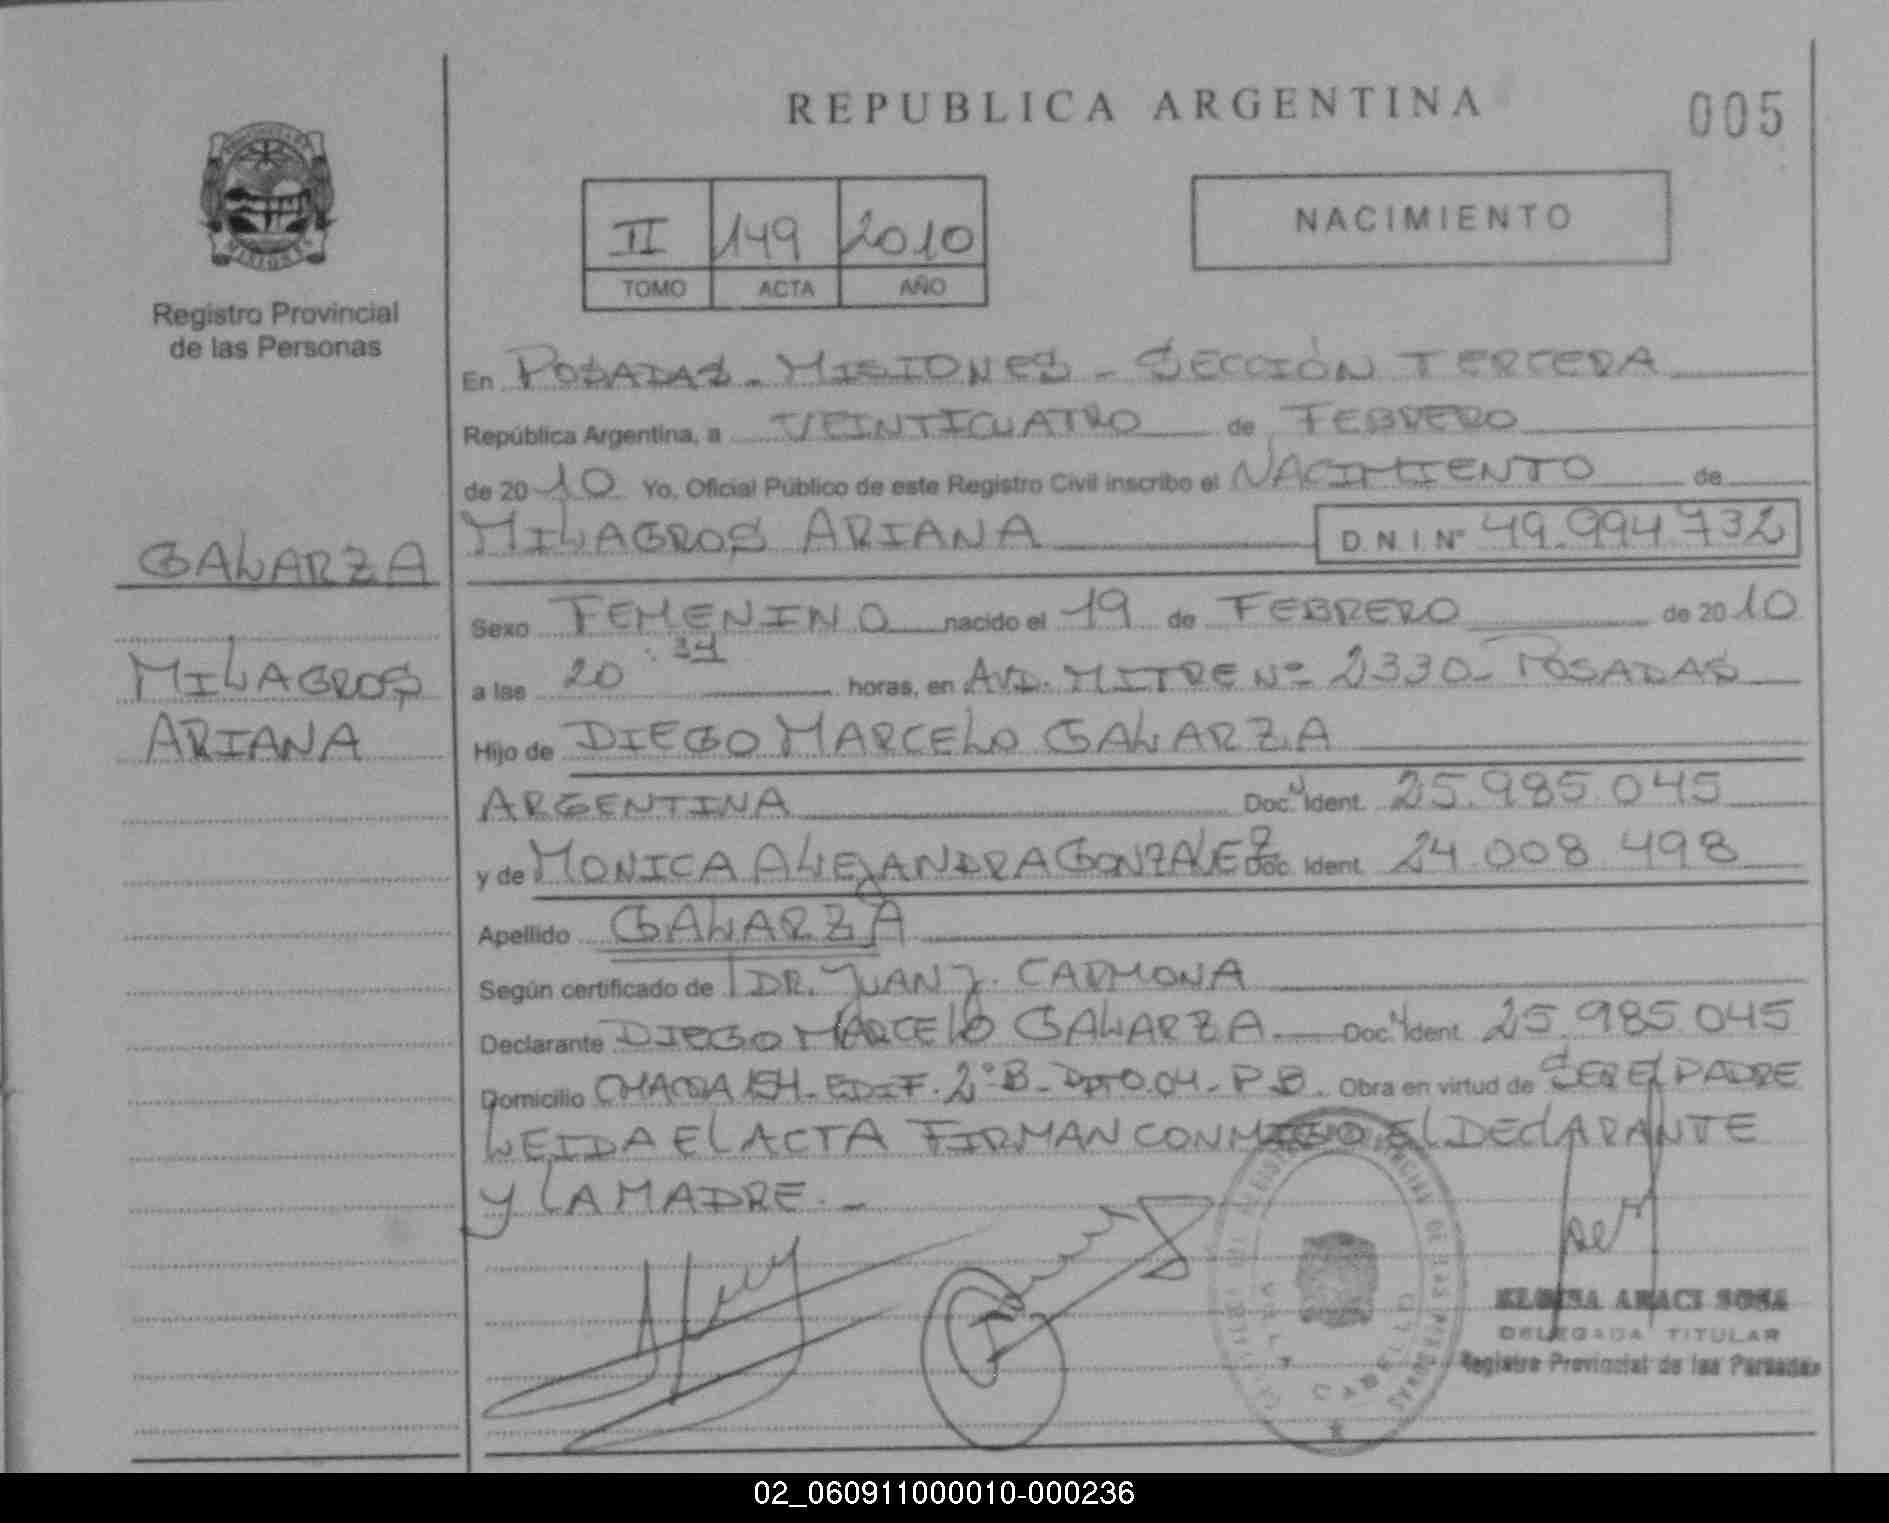 REPUBLICA ARGENTINA
005
II 149 2010
TOMO ACTA AÑO
NACIMIENTO
Registro Provincial
de las Personas
En POSADAS - MISIONES - SECCIÓN TERCERA
República Argentina, a VEINTICUATRO de FEBRERO
de 2010 Yo, Oficial Público de este Registro Civil inscribo el NACIMIENTO de
MILAGROS ARIANA D.N.I. Nº 49.994.732
GALARZA
MILAGROS
ARIANA
Sexo FEMENINO nacido el 19 de FEBRERO de 2010
a las 20:34 horas, en AVD. MITRE Nº 2330 - POSADAS
Hijo de DIEGO MARCELO GALARZA
ARGENTINA Doc. Ident. 25.985.045
y de MONICA ALEJANDRA GONZALEZ Doc. Ident. 24.008.498
Apellido GALARZA
Según certificado de DR. JUAN J. CARMONA
Declarante DIEGO MARCELO GALARZA Doc. Ident. 25.985.045
Domicilio CHACRA 154 - EDIF. 2º B - DPTO. 04 - P.B. Obra en virtud de SER EL PADRE
LEIDA EL ACTA FIRMAN CONMIGO EL DECLARANTE
Y LA MADRE. -
ELOISA ARACI SOSA
DELEGADA TITULAR
Registro Provincial de las Personas
02_060911000010-000236